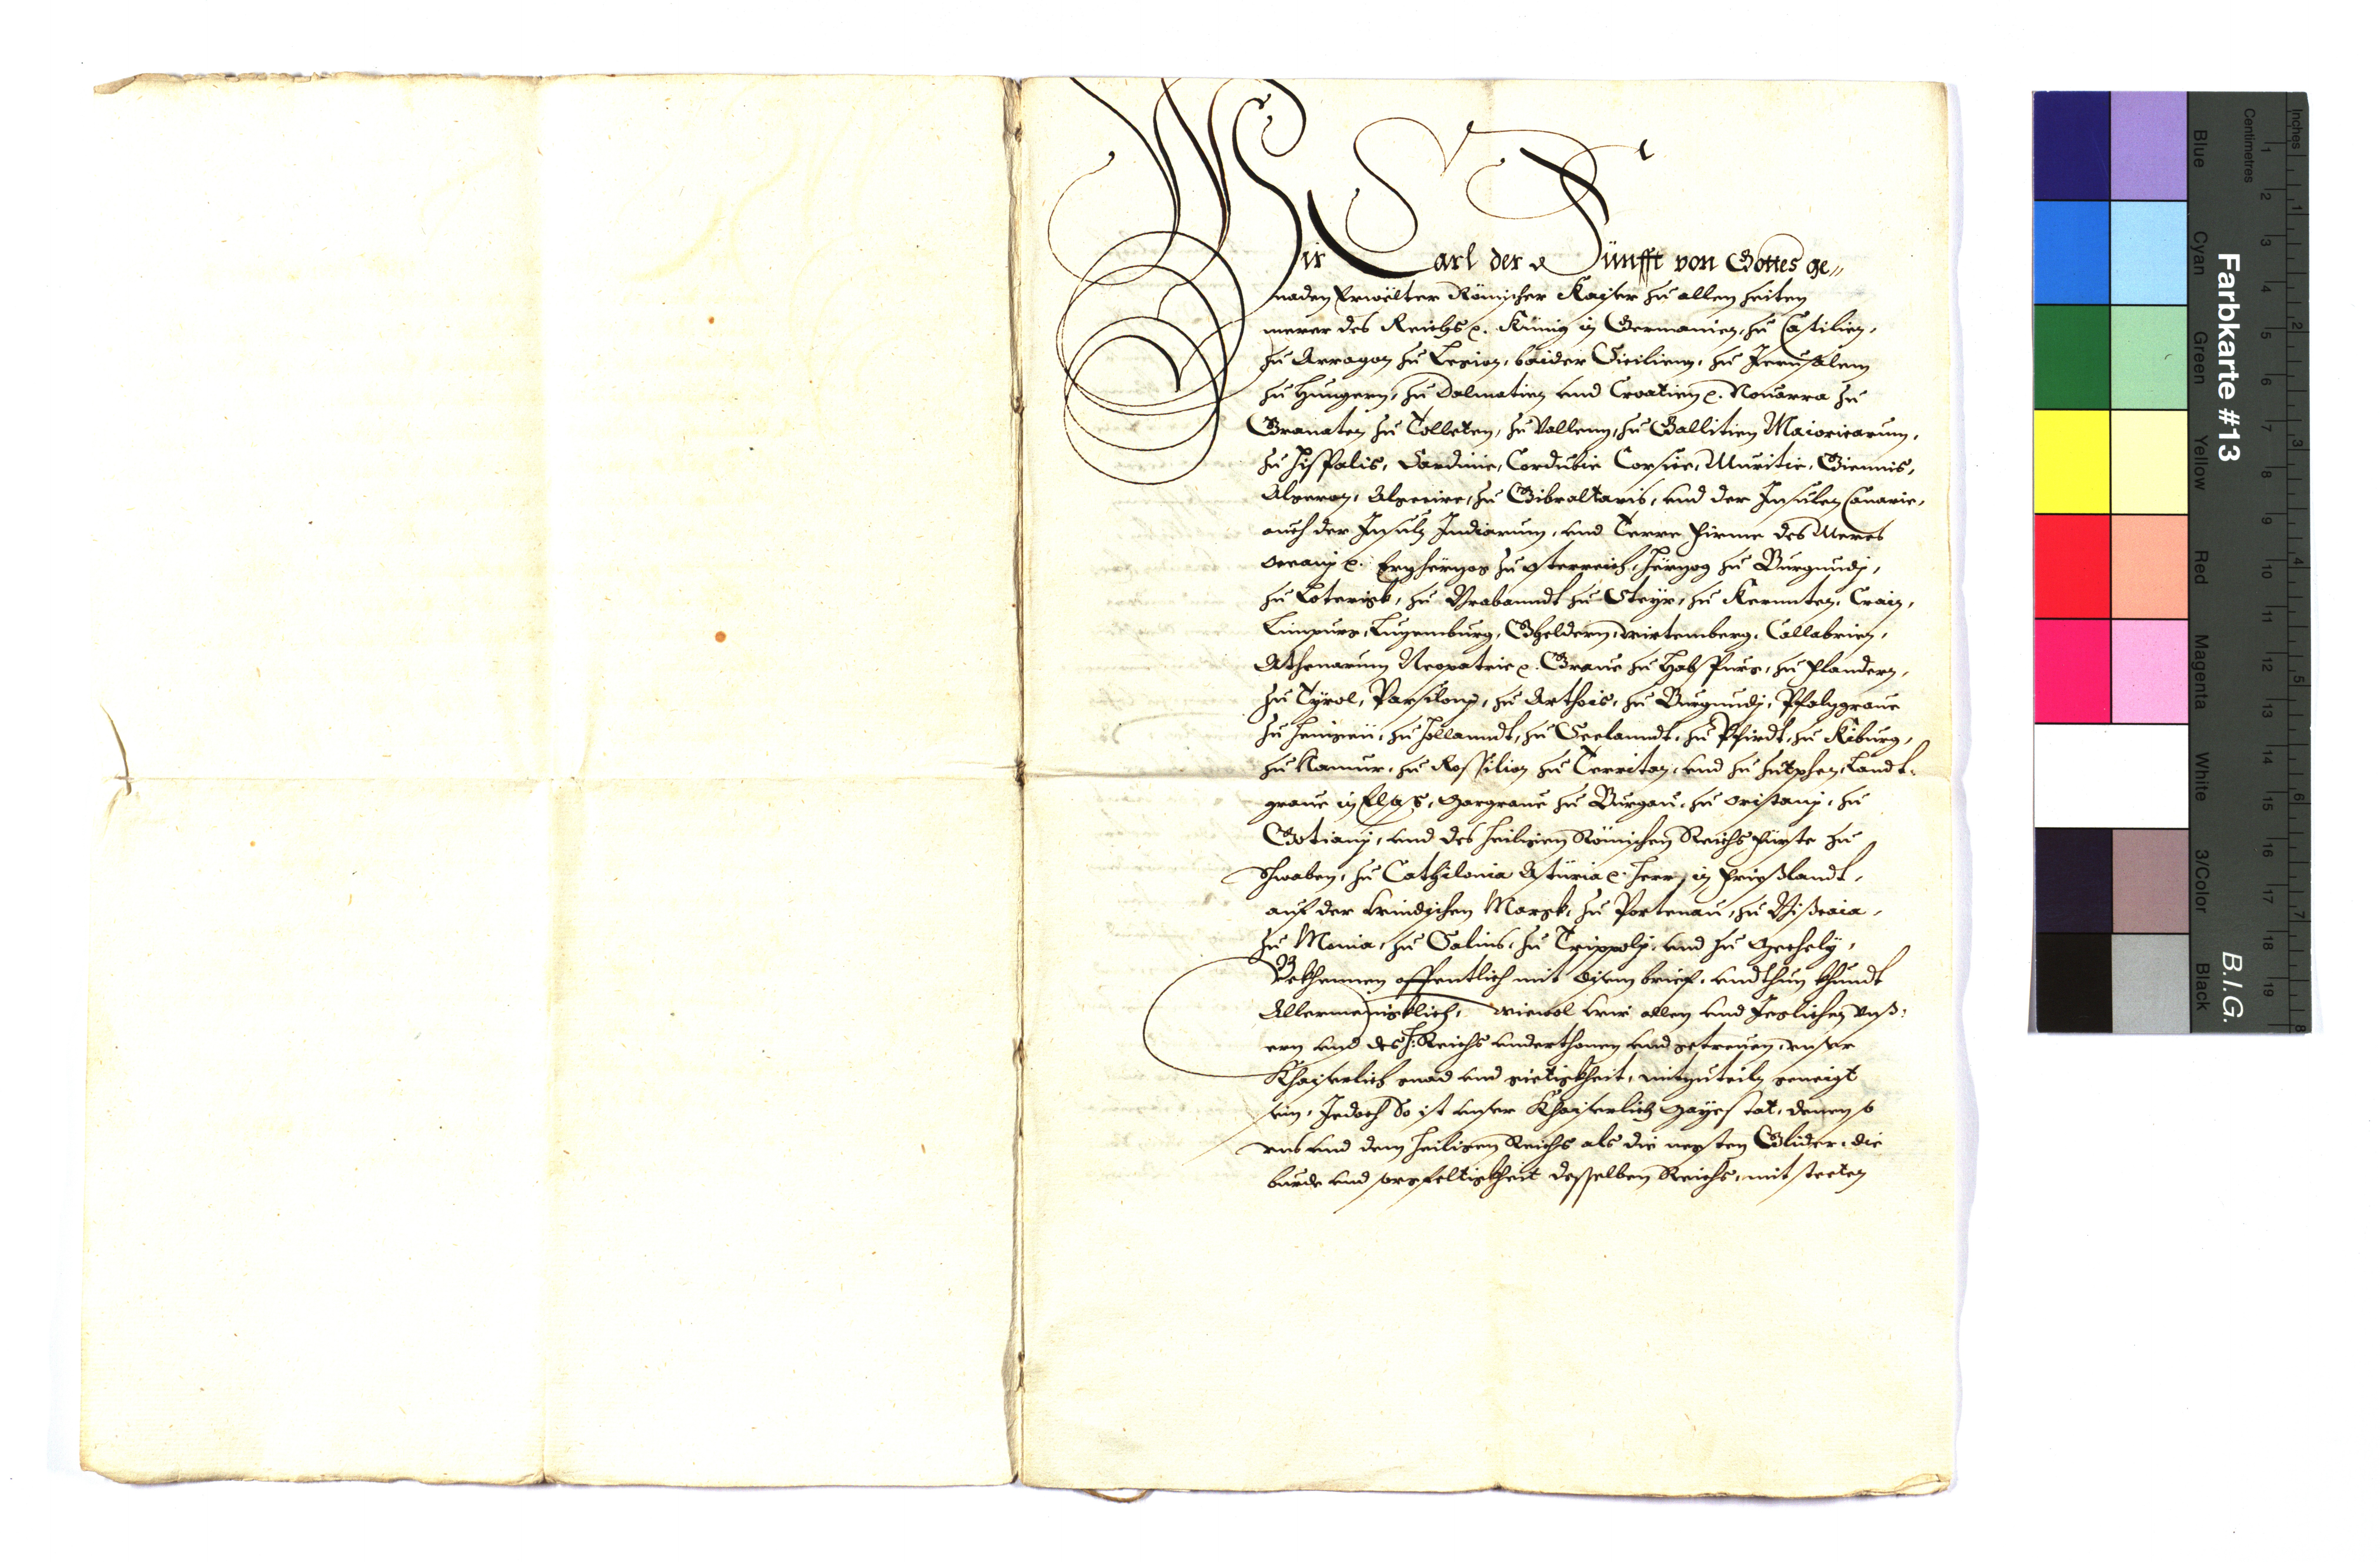 Wir Carl der Fünfft von Gottes ge„
naden Erwölter Römischer Kayser zu allen zeiten
merer des Reichs ꝛc. Künig in Germanien, zu Castilien,
zu Arragon zu Legion, baider Sicilien, zu Jerusalem
zu Hungern, zu Dalmatien vnd Croatien ꝛc. Nouarra zu
Granaten zu Tolleten, zu Vallenn, zu Gallitien Maioricarum,
zu Hispalis, Sardinie, Cordubie Corsice, Muritie, Giennis,
Algeron, Algecire, zu Gibraltaris, vnd der Insulen Canarie,
auch der Insuln Indiarum, vnd Terre firme des Meres
Oceanj ꝛc. Ertzhertzog zu Osterreich, Hertzog zu Burgundj,
zu Loterigk, zu Brabanndt zu Steyr, zu Kernnten, Crain,
Limpurg, Lutzemburg, Gheldern, Wirtemberg, Callabrien,
Athenarum Neopatrie ꝛc. Graue zu Habspurg, zu Flandern,
zu Tyrol, Parsilonj, zu Arthois, zu Burgundj, Pfaltzgraue
zu Henigeü, zu Hollanndt, zu Seelanndt, zu Pfirdt, zu Kiburg,
zu Namur, zu Rossilion zu Territan, vnd zu Zutphen, Landt-
graue in Elsas, Margraue zu Burgau, zu Oristanj, zu
Gotianj, vnd des Heiligen Römischen Reichs Fürste zu
Schwaben, zu Cathilonia Asturia ꝛc. Herr in Frießlandt,
auf der Windischen Margk, zu Portenau, zu Bißcaia,
zu Monia, zu Salins, zu Trippolj, vnd zu Mechely,
Bekhennen offentlich mit disem brief, vnd thun khundt
Allermenigklich, Wiewol wir allen vnd Jeglichen vnß-
ern vnd des H: Reichs vnderthonen vnd getreuen, vnser
Khayserlich gnad vnd gietigkheit, mitzuteiln geneigt
sein, Jedoch So ist vnser Khayserlich Mayestat, denen so
vns vnd dem Heiligen Reichs als die negsten Glider, die
burde vnd sorgfeltigkheit desselben Reichs, mit steeten
Farbkarte #13
B.I.G.
Inches
Centimetres
Blue
Cyan
Green
Yellow
Red
Magenta
White
3/Color
Black
1 2 3 4 5 6 7 8 9 10 11 12 13 14 15 16 17 18 19
1 2 3 4 5 6 7 8